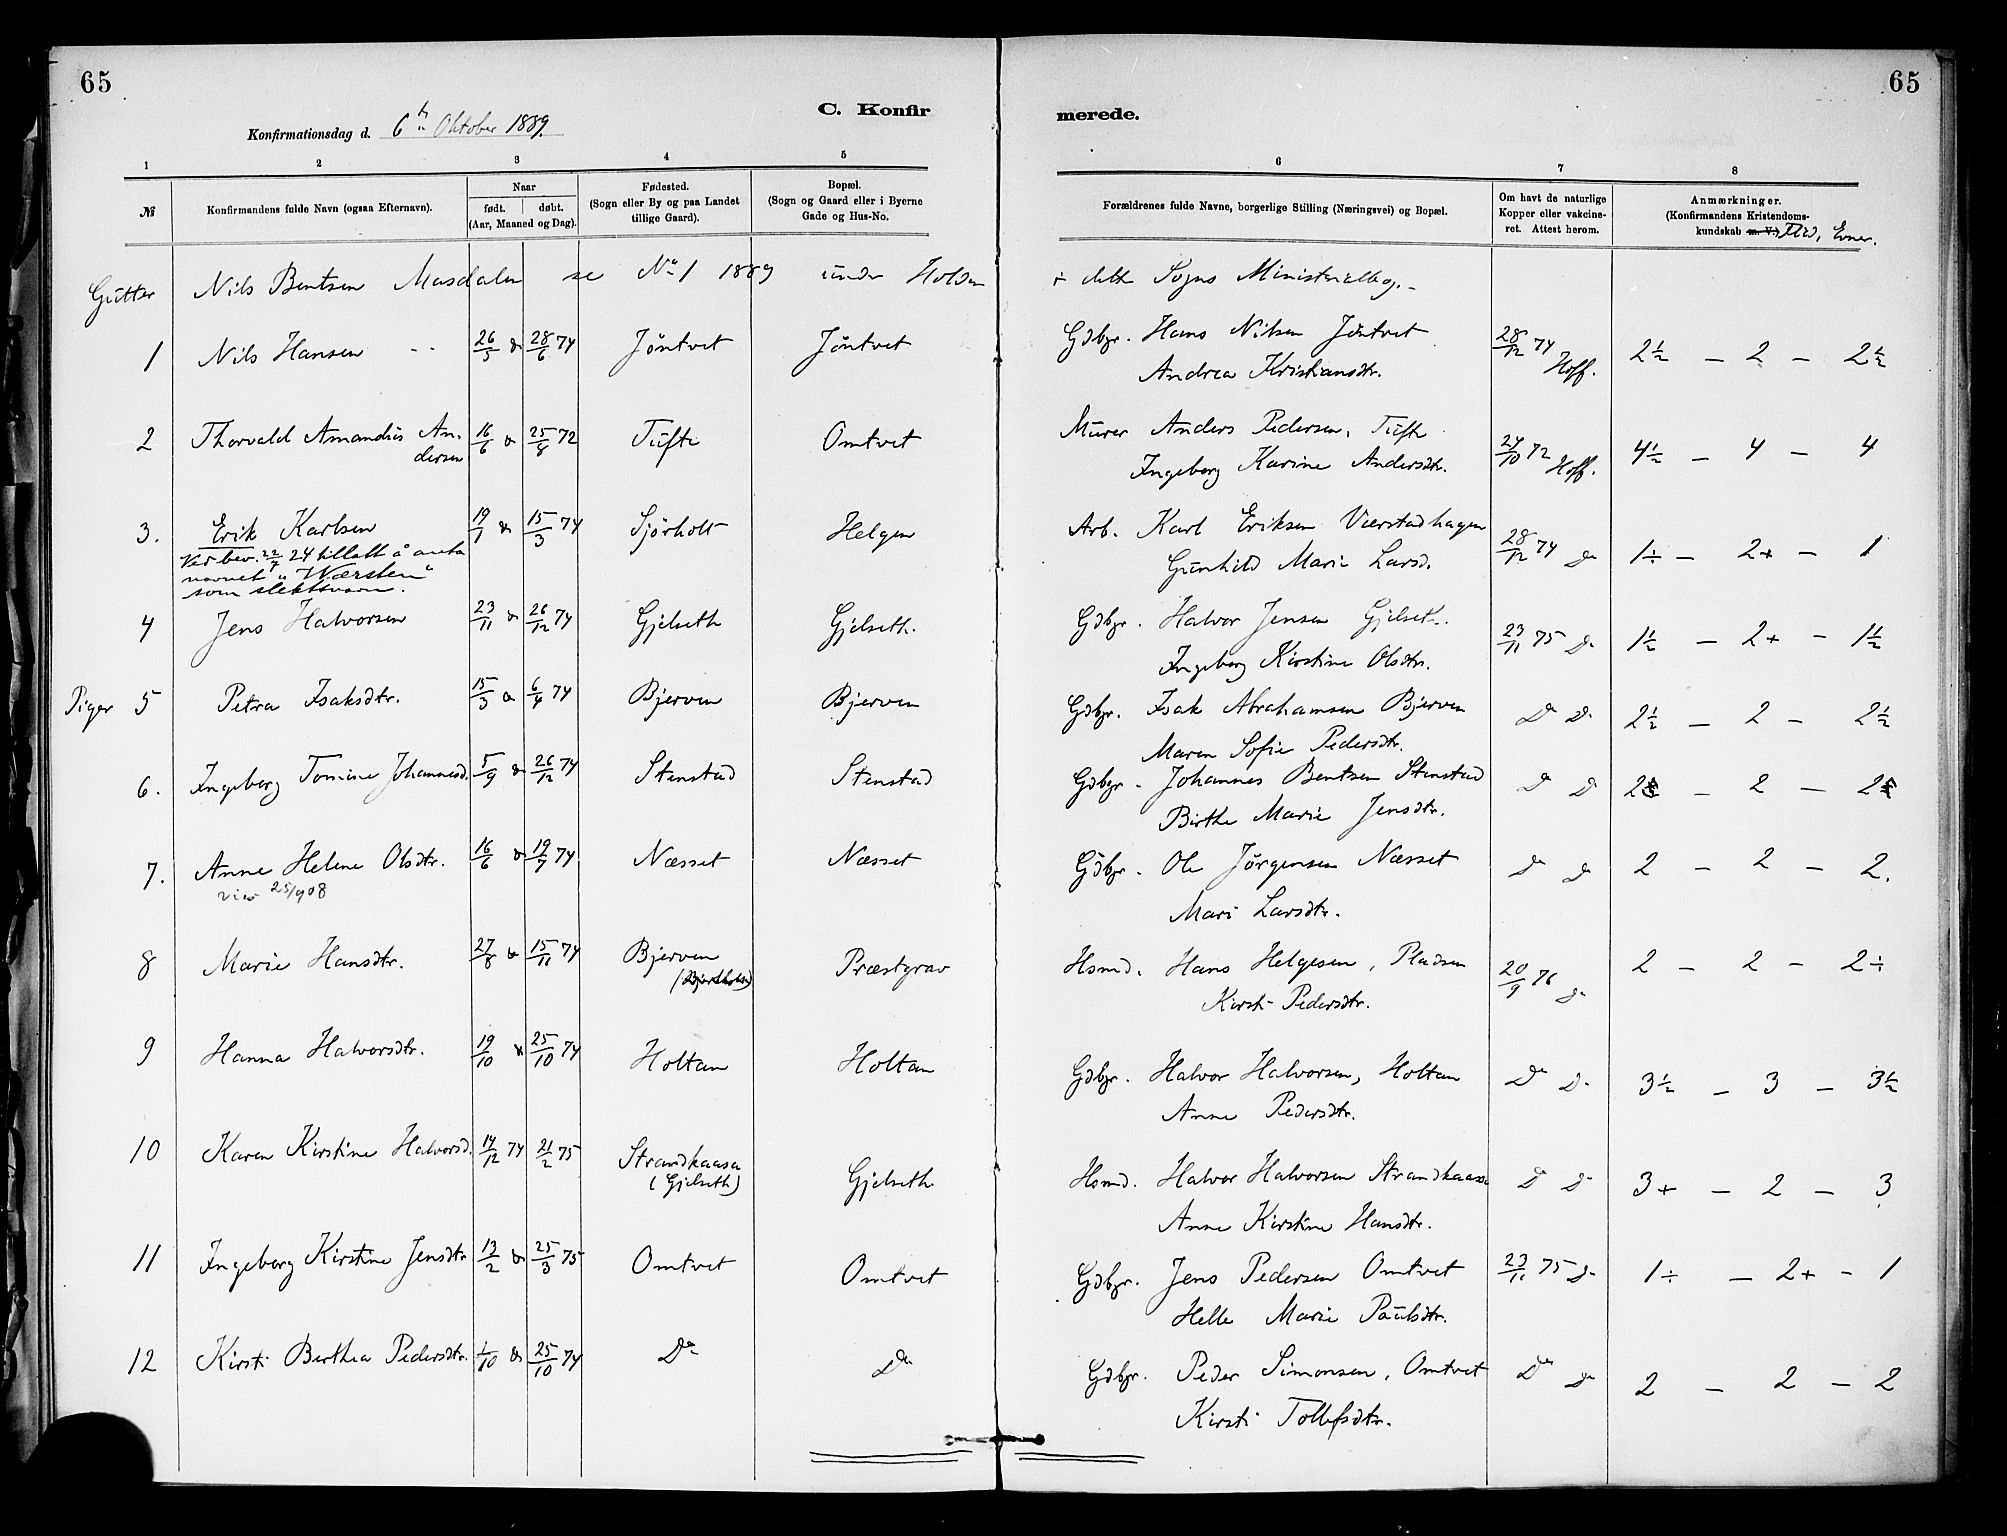 65
65
C. Konfir
merede.
Konfirmationsdag d. 6te Oktober 1889.
1 2 3 4 5 6 7 8
№ Konfirmandens fulde Navn (ogsaa Efternavn). Naar født. døbt. (Aar, Maaned og Dag). Fødested. (Sogn eller By og paa Landet tillige Gaard). Bopæl. (Sogn og Gaard eller i Byerne Gade og Hus-No. Forældrenes fulde Navne, borgerlige Stilling (Næringsvei) og Bopæl. Om havt de naturlige Kopper eller vakcineret. Attest herom. Anmærkninger. (Konfirmandens Kristendomskundskab m. V.) Flid, Evner.
Gutter Nils Bentsen Masdalen se No 1 1889 under Holden i dette Sogns Ministerialbog.
1 Nils Hansen 26/5 & 28/6 74 Jöntvet Jöntvet Gdbgr. Hans Nilsen Jöntvet 28/12 74 Hoff. 2½ – 2 – 2½
Andrea Kristiansdtr.
2 Thorvald Amandus An- 16/6 & 25/8 72 Tufte Omtvet Murer Anders Pedersen, Tufte 24/10 72 Hoff. 4½ – 4 – 4
dersen Ingeborg Karine Andersdtr.
3. Erik Karlsen 19/1 & 15/3 74 Sjörholt Helgen Arb. Karl Eriksen Værstadhagen 28/12 74 Do 1÷ – 2+ – 1
Ved bev. 22/7 24 tillatt å anta Gunhild Marie Larsd.
navnet "Værsten"
som slektsnavn.
4 Jens Halvorsen 23/11 & 26/12 74 Gjelseth Gjelseth. Gdbgr. Halvor Jensen Gjelset. 23/11 75 Do 1½ – 2+ – 1½
Ingeborg Kirstine Olsdtr.
Piger 5 Petra Isaksdtr. 15/3 & 6/4 74 Bjerven Bjerven Gdbgr. Isak Abrahamsen Bjerven Do Do 2½ – 2 – 2½
Maren Sofie Pedersdtr.
6. Ingeborg Tomine Johannesd. 5/9 & 26/12 74 Stenstad Stenstad Gdbgr. Johannes Bentsen Stenstad Do Do 2 – 2 – 2
Birthe Marie Jensdtr.
7. Anne Helene Olsdtr. 16/6 & 19/7 74 Næsset Næsset Gdbgr. Ole Jørgensen Næsset Do Do 2 – 2 – 2.
25/9 08 Mari Larsdtr.
8 Marie Hansdtr. 27/8 & 15/11 74 Bjerven Præstgrav Hsmd. Hans Helgesen, Pladsen 20/9 76 Do 2 – 2 – 2÷
Kirsti Pedersdtr.
9 Hanna Halvorsdtr. 19/10 & 25/10 74 Holtan Holtan Gdbgr. Halvor Halvorsen, Holtan Do Do 3½ – 3 – 3½
Anne Pedersdtr.
10 Karen Kirstine Halvorsd. 14/12 74 21/2 75 Strandkaasa Gjelseth Hsmd. Halvor Halvorsen Strandkaasa Do Do 3+ – 2 – 3
(Gjelseth) Anne Kirstine Hansdtr.
11 Ingeborg Kirstine Jensdtr 13/2 & 25/3 75 Omtvet Omtvet Gdbgr. Jens Pedersen Omtvet 23/11 75 Do 1÷ – 2+ – 1
Helle Marie Paulsdtr.
12 Kirsti Berthea Pedersdtr. 1/10 & 25/10 74 Do Do Gdbgr. Peder Simonsen, Omtvet Do Do 2 – 2 – 2
Kirsti Tollefsdtr.